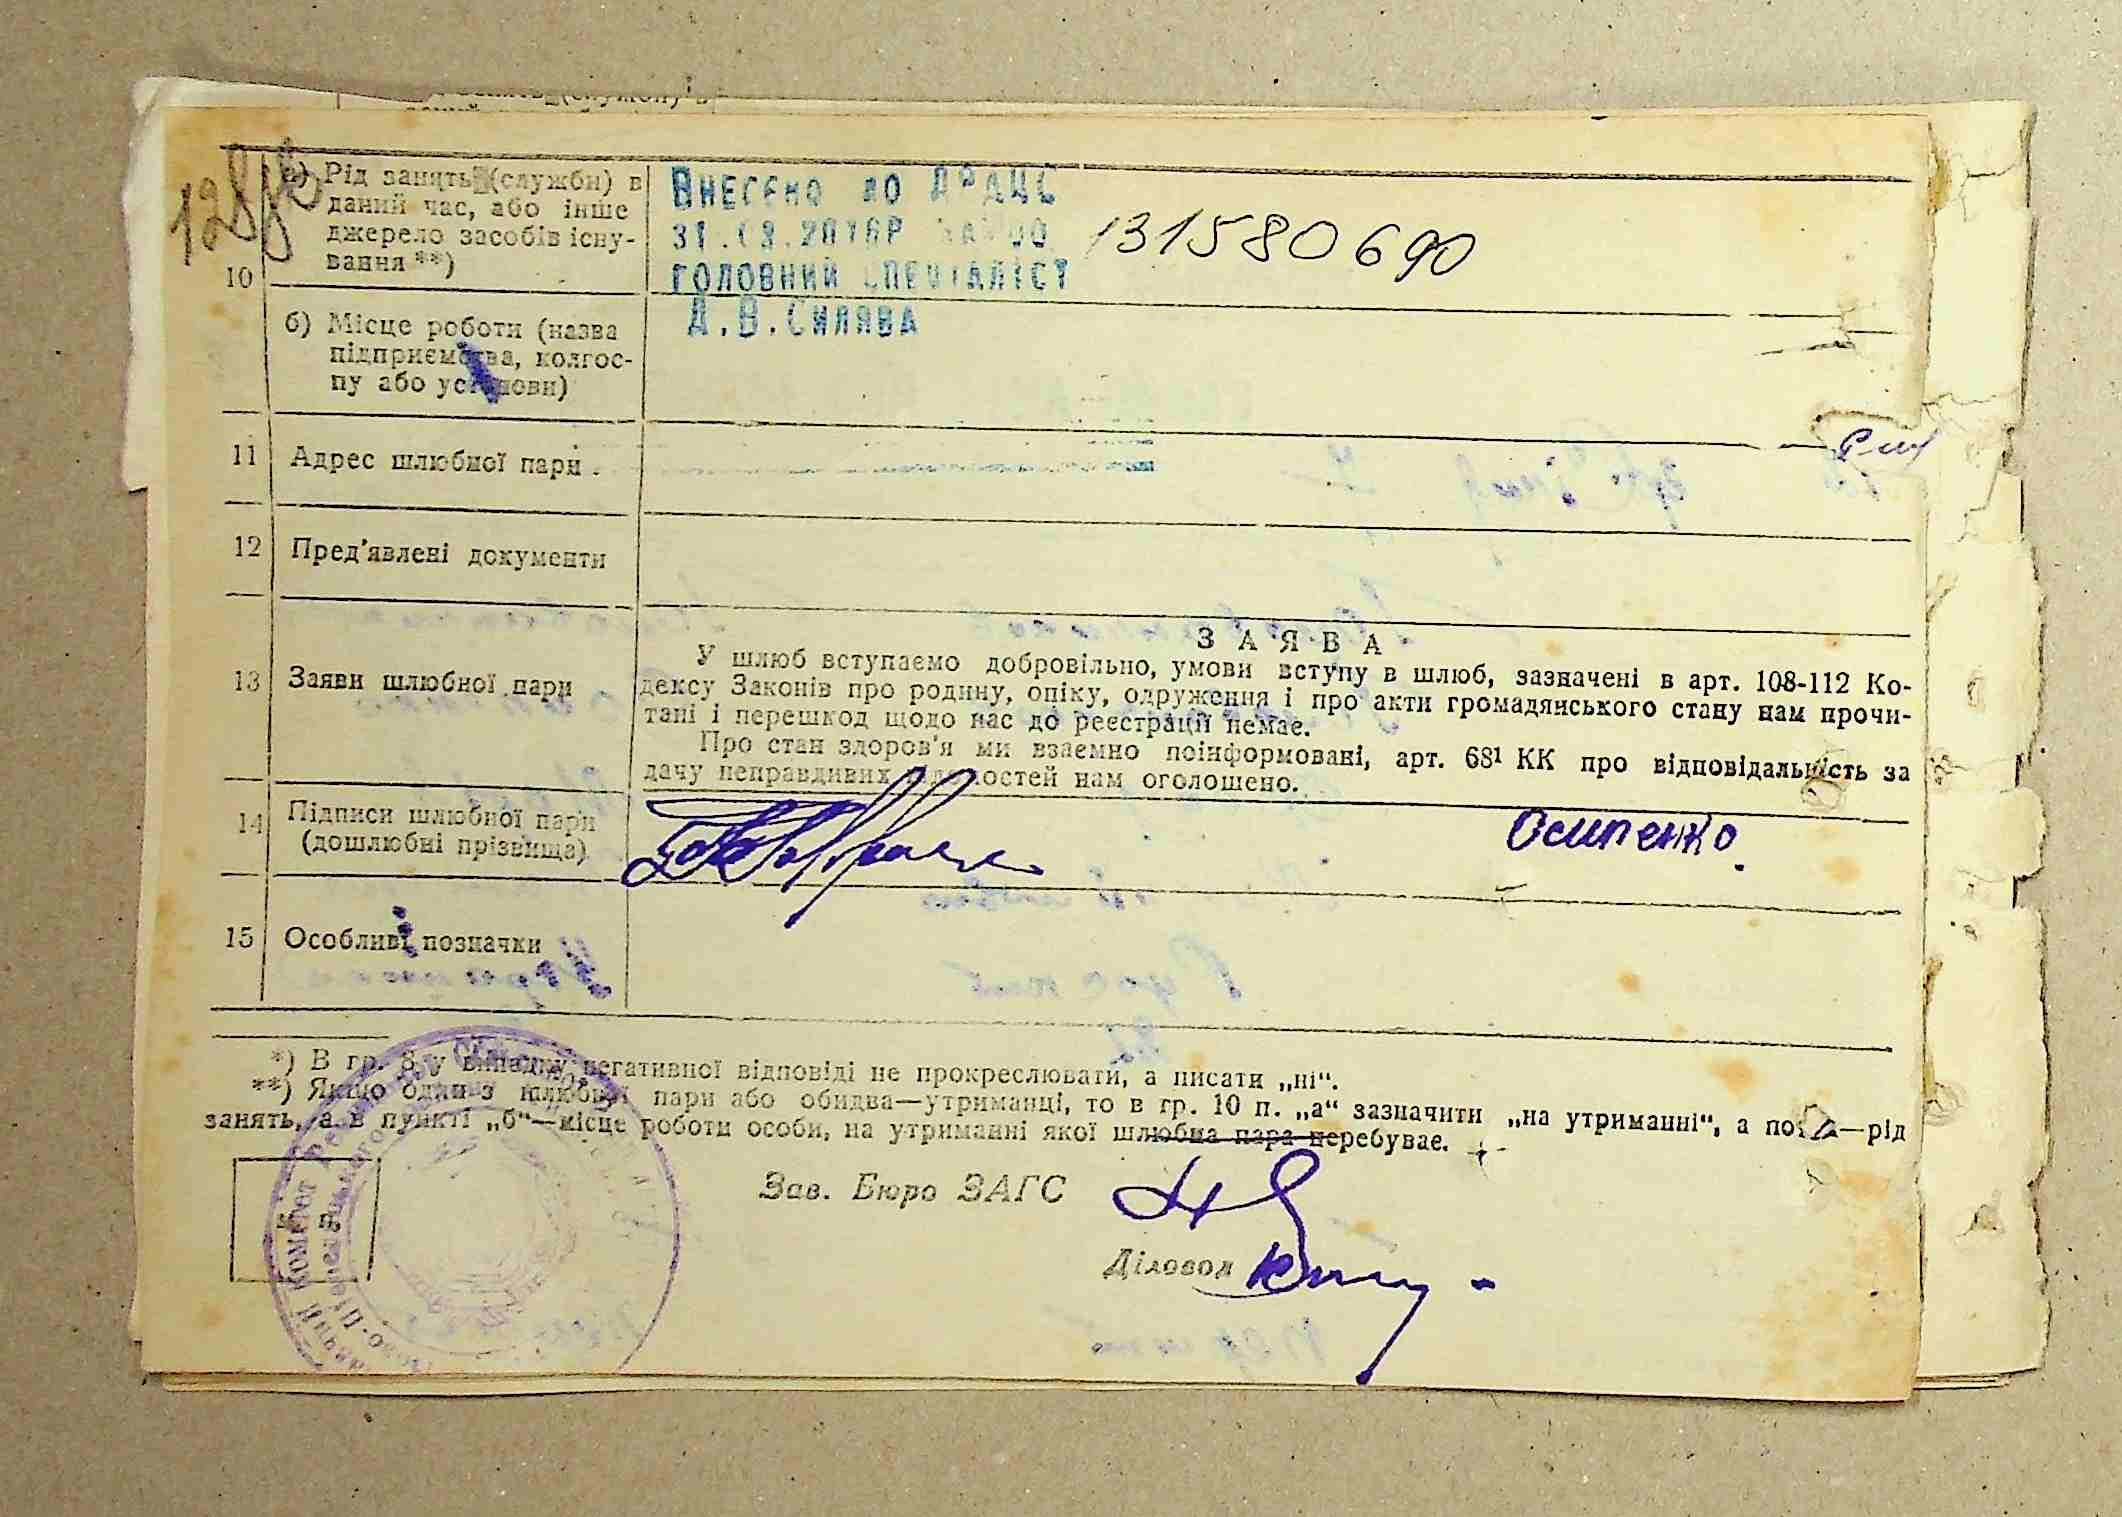 а) Рід занять (служби) в
даний час, або інше
джерело засобів існу-
вання **)
10
Внесено до ДРАЦС
131580690
головний спеціаліст
Д.В.Силява
б) Місце роботи (назва
підприємства, колгос-
пу або установи)
11 Адрес шлюбної пари
12 Пред'явлені документи
13 Заяви шлюбної пари
ЗАЯВА
У шлюб вступаємо добровільно, умови вступу в шлюб, зазначені в арт. 108-112 Ко-
дексу Законів про родину, опіку, одруження і про акти громадянського стану нам прочи-
тані і перешкод щодо нас до реєстрації немає.
Про стан здоров'я ми взаємно поінформовані, арт. 68¹ КК про відповідальність за
дачу неправдивих відомостей нам оголошено.
14 Підписи шлюбної пари
(дошлюбні прізвища)
Осипенко
15 Особливі позначки
*) В гр. 8 у випадку негативної відповіді не прокреслювати, а писати „ні“.
**) Якщо один з шлюбної пари або обидва—утриманці, то в гр. 10 п. „а“ зазначити „на утриманні“, а —рід
занять, а в пункті „б“—місце роботи особи, на утриманні якої шлюбна пара перебуває.
Зав. Бюро ЗАГС
Діловод